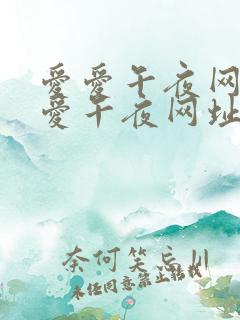 爱爱午夜网
爱午夜网址
奈何笑忘川
未经同意禁止转载